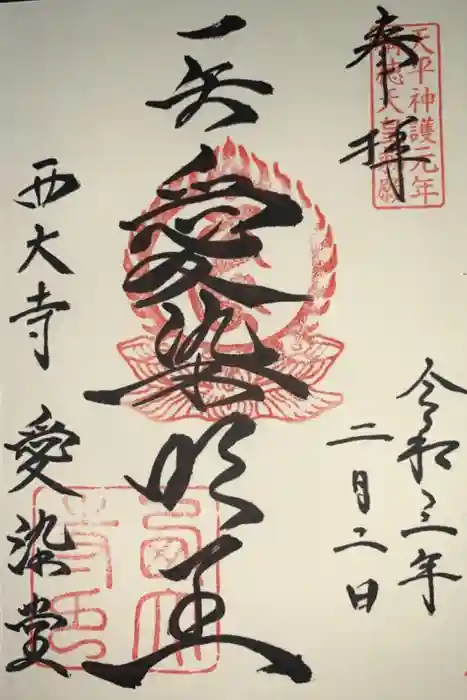 奉拝
天平神護元年
称徳天皇勅願
令和三年
二月二日
一矢
愛染明王
西大寺
愛染堂